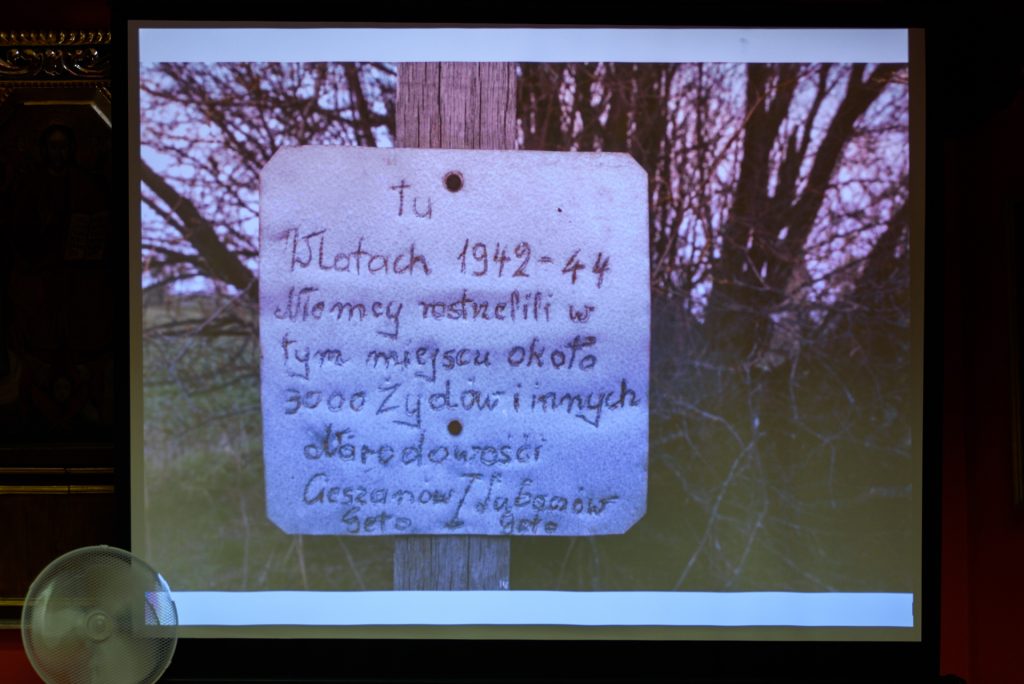 tu
W latach 1942-44
Niemcy rostrelili w
tym miejscu około
3000 Żydów i innych
Narodowości
Cieszanów / Lubaczów
Geto + Geto